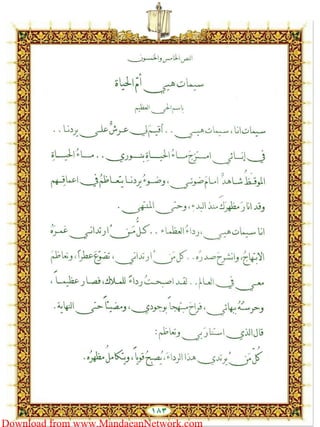 النص الخامس والخمسون
سيمات هيي أمّ الحياة
باسم الحي العظيم
سيمات انا، سيمات هيي .. أقيم لي عرش على يردنا ..
في إنائي امتزج ماء الحياة بنوري .. ماء الحياة
الموقظ شاهد أمام ضوئي، وضوء يردنا يتعاظم في اعماقهم
وقد انار مظهرك منذ البدء، وحتى المنتهى .
انا سيمات هيي، رداء العظماء .. كل من ارتداني غمره
الابتهاج، وانشرح صدره .. كل من ارتداني، تضوع عطرا، وتعاظم
معي في العالم .. لقد اصبحت رداء للملاك، فصار عظيما،
وحرسته بهائي، فراح مبتهجا بوجودي، ومضيئا حتى النهاية .
قال الذي استنار بي وتعاظم:
كل من يرتدي هذا الرداء، يصبح قويا، ويتكامل مظهره.
١٨٣
Download from www.MandaeanNetwork.com